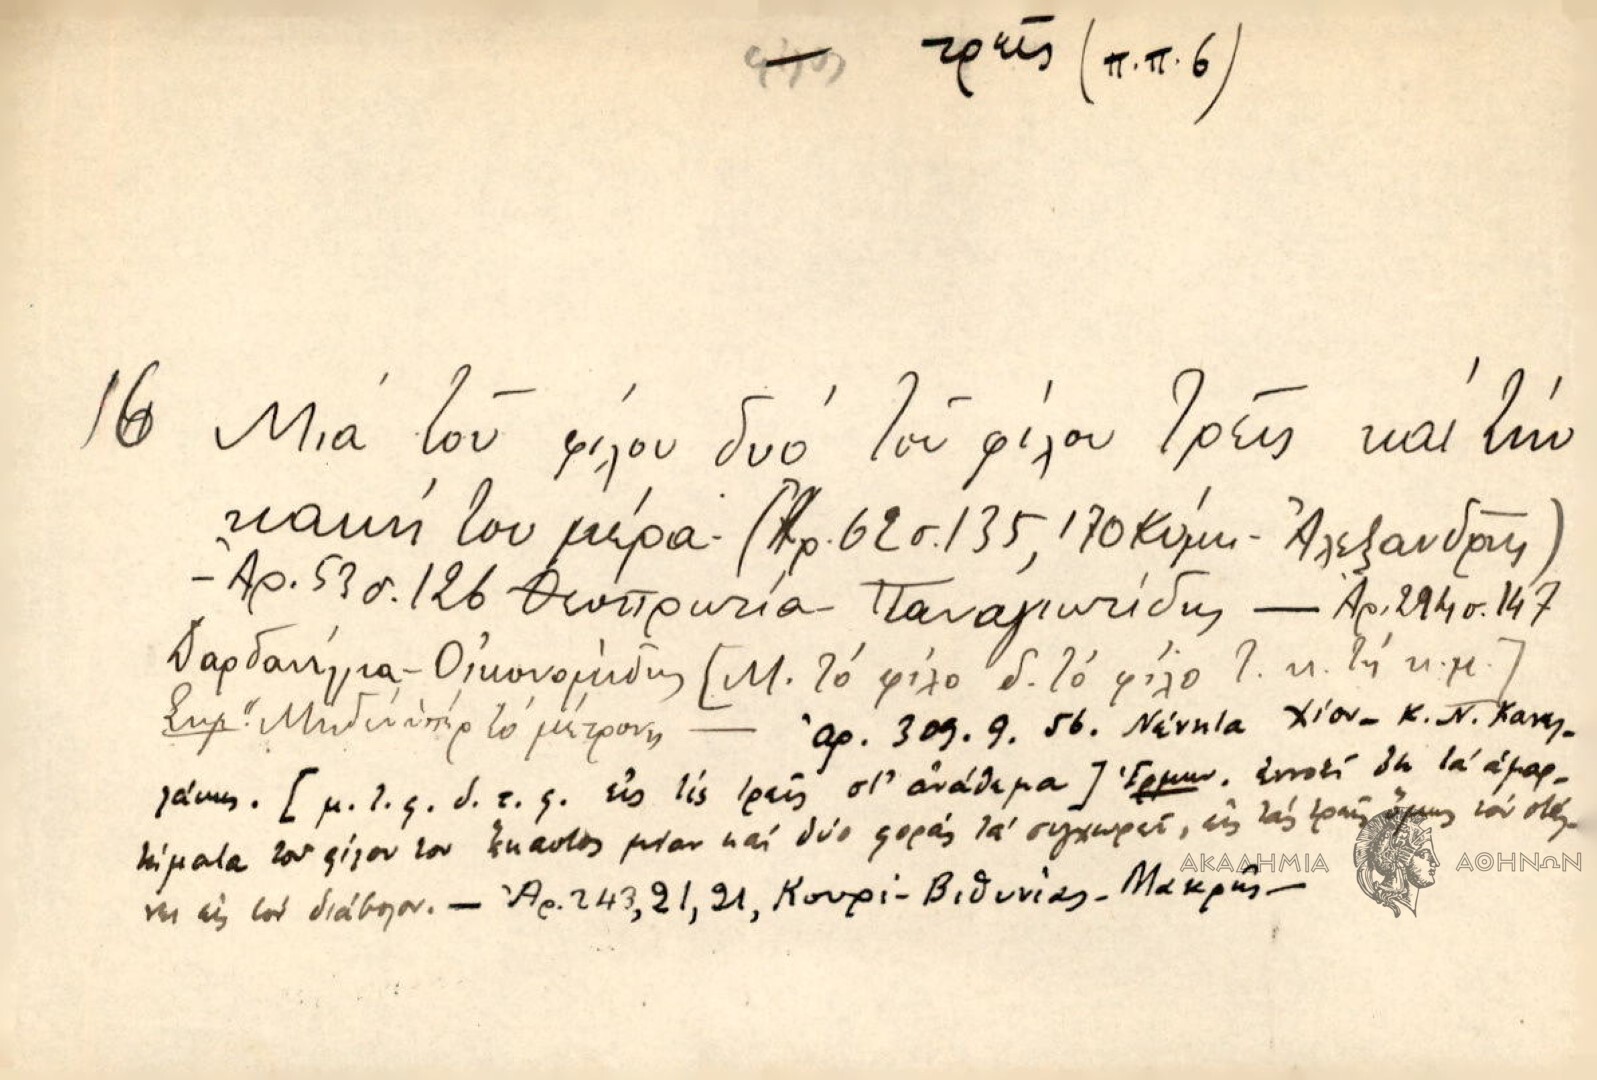 φίλος τρεῖς (π.π. 6)
16 Μιά τοῦ φίλου δυό τοῦ φίλου τρεῖς καί τήν
κακή του μέρα - (Ἀρ. 62 σ. 135, 170 Κύμη - Ἀλεξανδρῆς)
- Ἀρ. 53 σ. 126 Θεσπρωτία - Παναγιωτίδης — Ἀρ. 294 σ. 147
Δαρδανέλλια - Οἰκονομίδης [Μ. τό φίλο δ. τό φίλο τ. κ. τή κ.μ.]
Σημ. "Μηδέν ὑπέρ τό μέτρον" — Ἀρ. 309. 9. 56. Νένητα Χίου - Κ. Ν. Κανελ-
λάκης. [μ. τ. φ. δ. τ. φ. εἰς τίς τρεῖς στ' ἀνάθεμα] Ἑρμην. ἐννοεῖ ὅτι τά ἁμαρ-
τήματα τοῦ φίλου του ἕκαστος μίαν καί δύο φοράς τά συγχωρεῖ, εἰς τάς τρεῖς ὅμως τόν στέλ-
νει εἰς τόν διάβολον. — Ἀρ. 243, 21, 21, Κουρί - Βιθυνίας - Μακρῆς -
ΑΚΑΔΗΜΙΑ ΑΘΗΝΩΝ